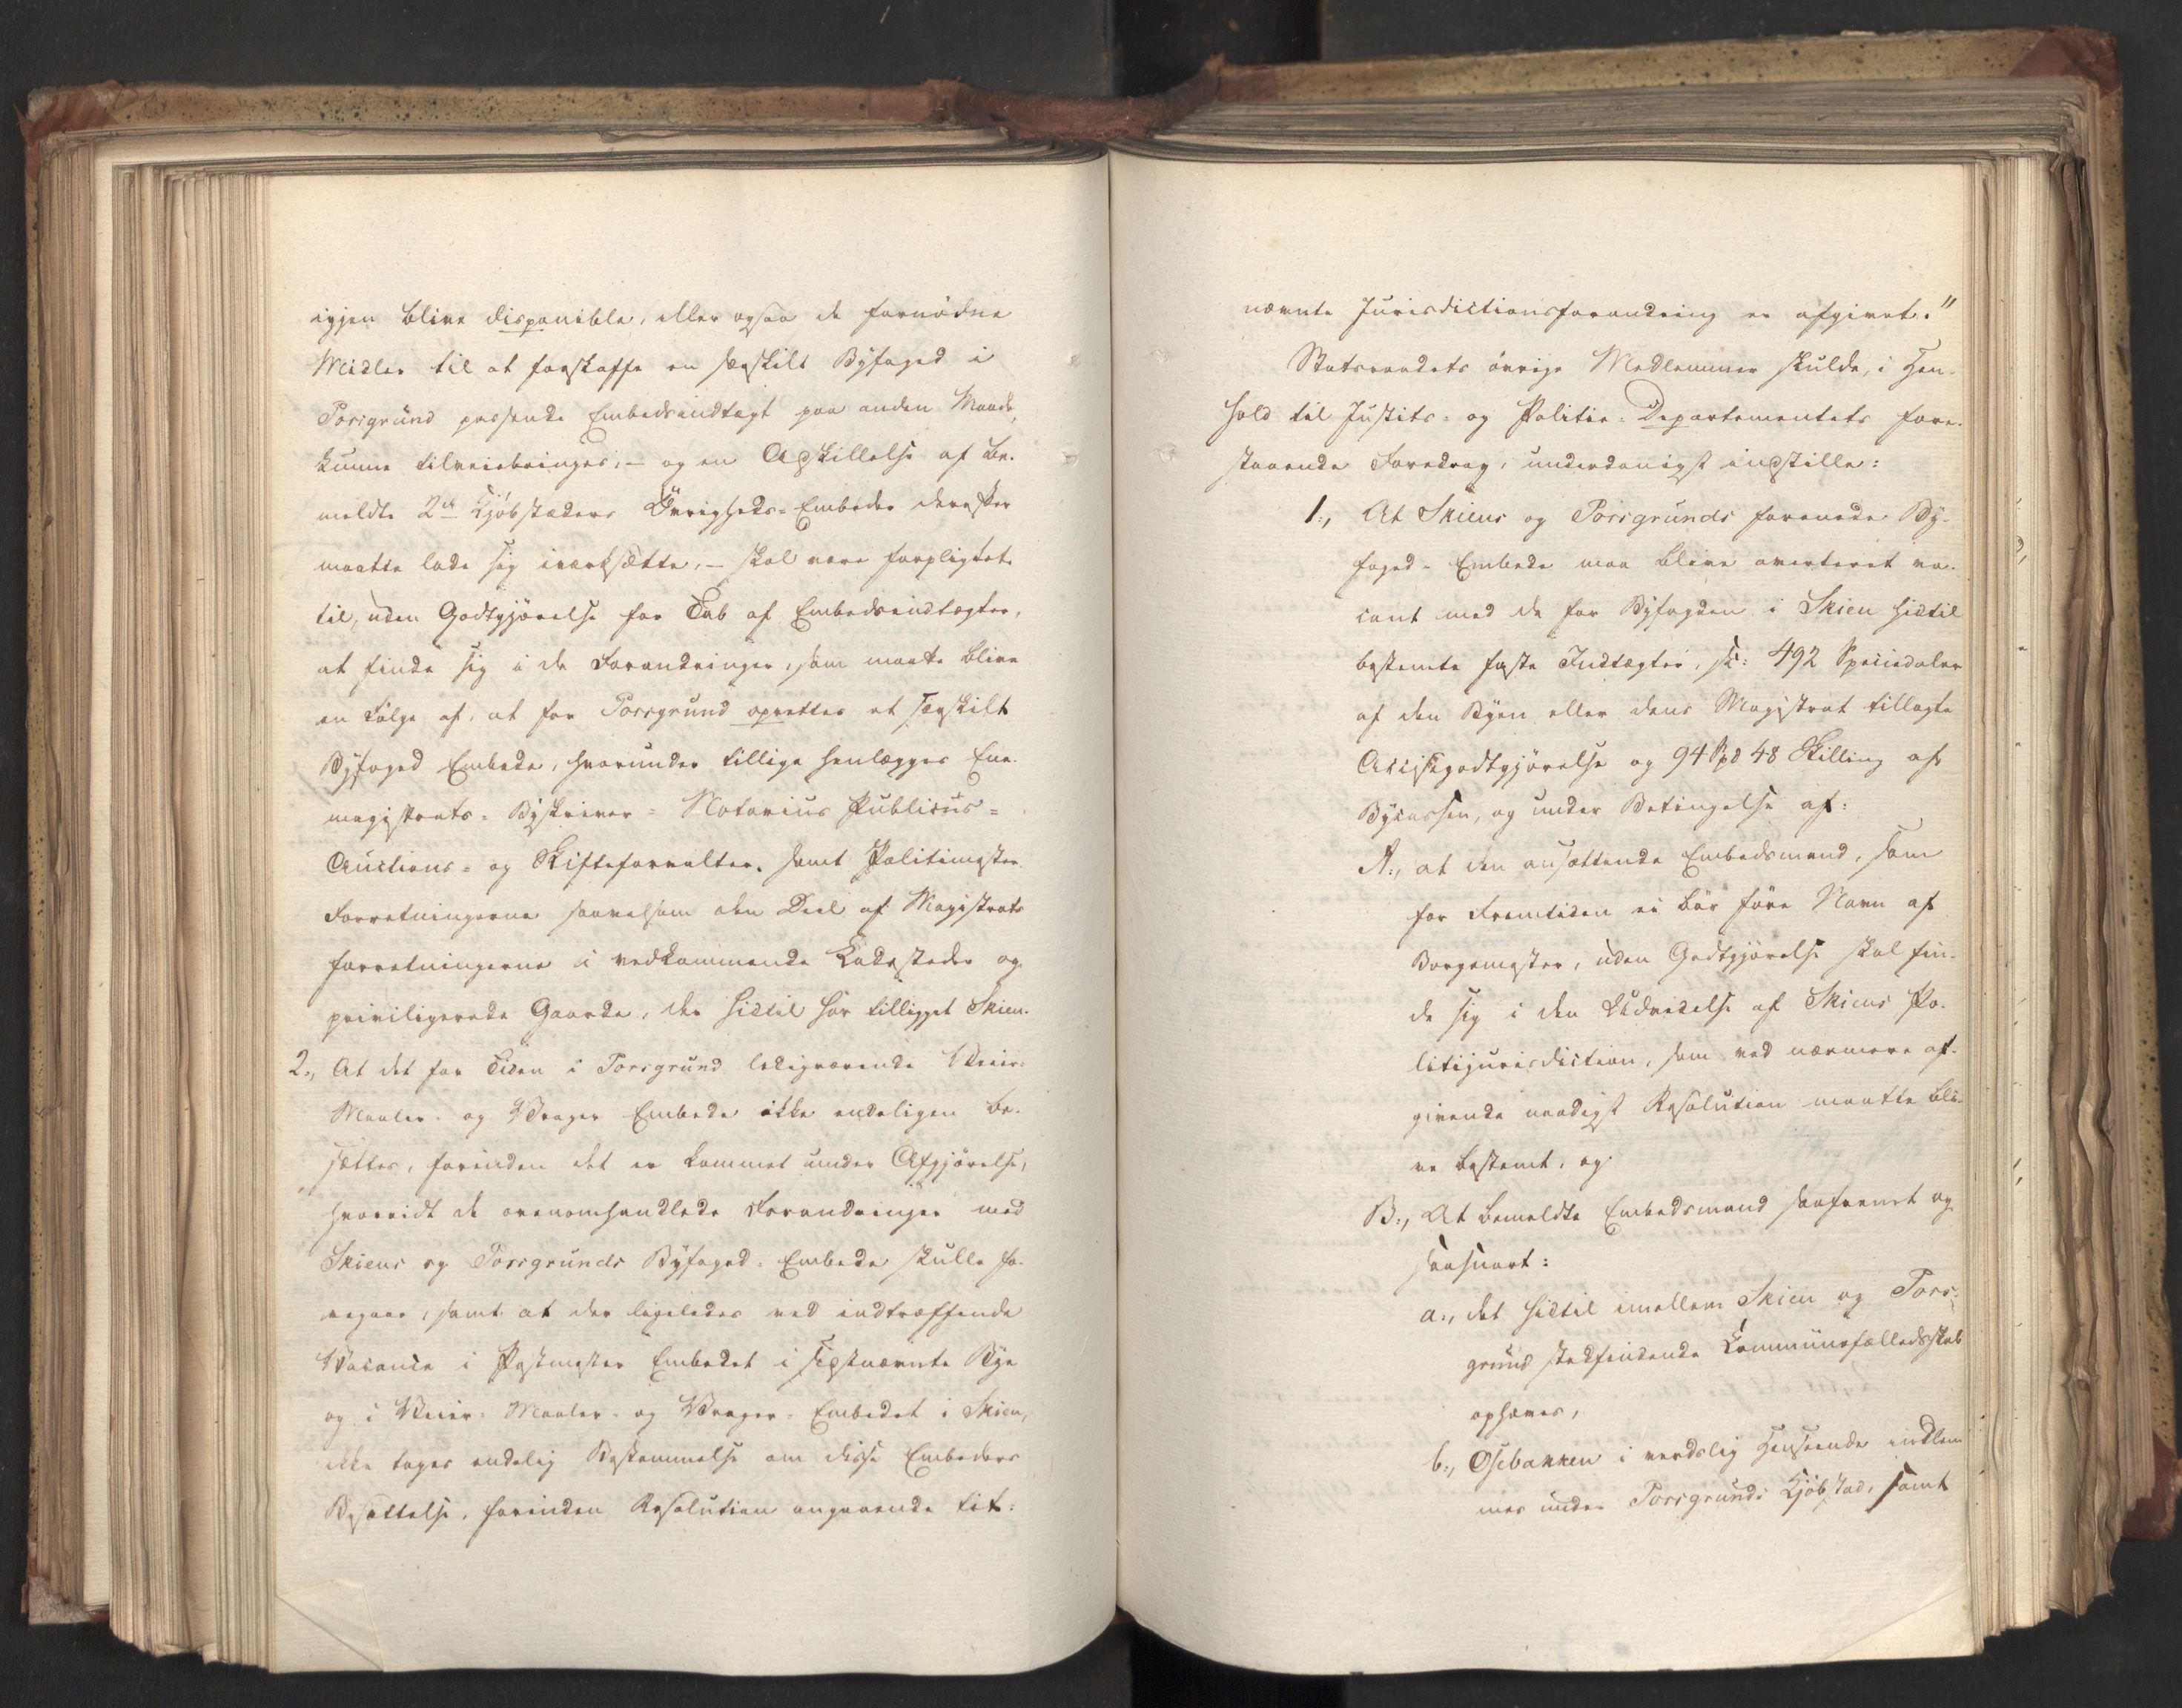 igjen blive disponible, eller ogsaa de fornødne
Midler til at forskaffe en særskilt Byfoged i
Porsgrund passende Embedsindtægt paa anden Maade,
kunne tilveiebringes, – og en Adskillelse af be-
meldte 2de Kjøbstæders Øvrigheds-Embeder derefter
maatte lade sig iværksætte, – skal være forpligtet
til, uden Godtgjørelse for Tab af Embedsindtægter,
at finde sig i de Forandringer, som maatte blive
en Følge af, at for Porsgrund oprettes et særskilt
Byfoged Embede, hvorunder tillige henlægges Ene-
magistrats- Byskriver- Notarius Publicus-
Auctions- og Skifteforvalter- samt Politimester
Forretningerne saavelsom den Deel af Magistrats
forretningerne i vedkommende Ladesteder og
priviligerede Gaarde, der hidtil har tilligget Skien.
2., At det for Tiden i Porsgrund ledigværende Veier-
Maaler- og Vrager Embede ikke endeligen be-
sættes, forinden det er kommet under Afgjørelse,
hvorvidt de ovenomhandlede Forandringer med
Skiens og Porsgrunds Byfoged-Embede skulle fo-
regaae, samt at der ligeledes ved indtræffende
Vacance i Postmester Embedet i sidstnævnte Bye
og i Veier- Maaler- og Vrager-Embedet i Skien,
ikke tages endelig Bestemmelse om disse Embeders
Besættelse, forinden Resolution angaaende sidst-
nævnte Jurisdictionsforandring er afgivet."
Statsraadets øvrige Medlemmer skulde, i Hen-
hold til Justits- og Politie-Departementets fore-
staaende Foredrag, underdanigst indstille:
1., At Skiens og Porsgrunds forenede By-
foged-Embede maa blive averteret va-
cant med de for Byfogden i Skien hidtil
bestemte faste Indtægter, sc: 492 Speciedaler
af den Byen eller dens Magistrat tillagte
Acciisgodtgjørelse og 94 Spd 48 Skilling af
Bycassen, og under Betingelse af:
A., at den ansættende Embedsmand, som
for Fremtiden ei bør føre Navn af
Borgemester, uden Godtgjørelse skal fin-
de sig i den Udvidelse af Skiens Po-
litijurisdiction, som ved nærmere af-
givende naadigst Resolution maatte bli-
ve bestemt, og
B., At bemeldte Embedsmand saafremt og
saasnart:
a., det hidtil imellem Skien og Pors-
grund stedfindende Communefælledsskab
ophæves,
b., Osebakken i verdslig Henseende indlem
mes under Porsgrunds Kjøbstad, samt